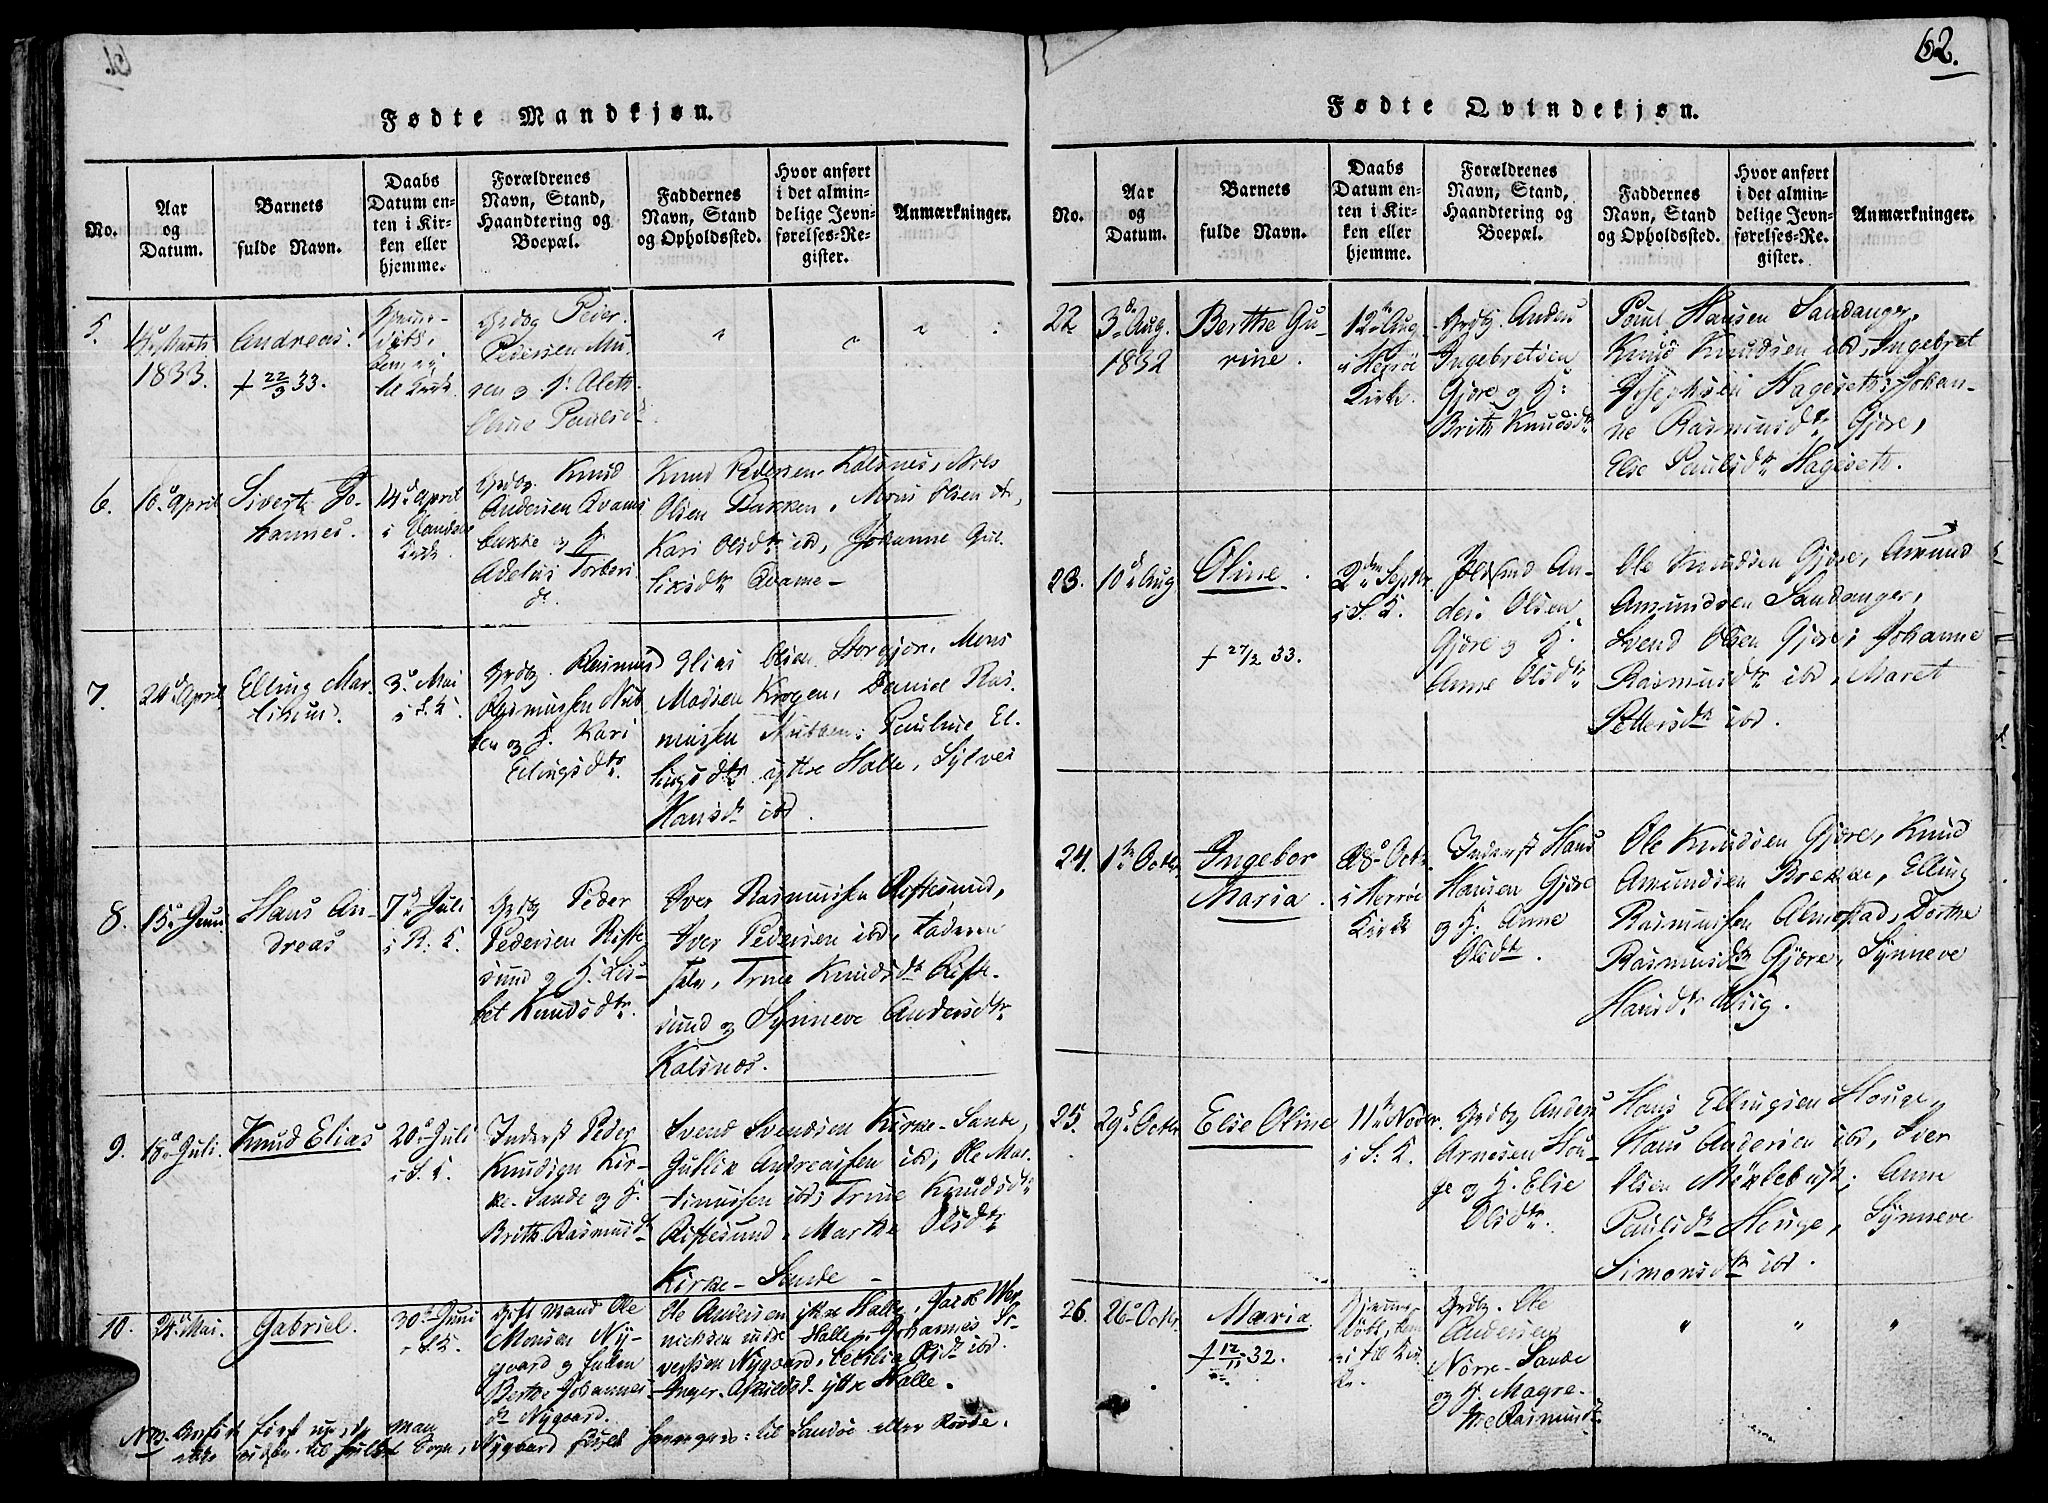 61.
Fødte Mandkjøn.
No.
Aar
og
Datum.
Barnets
fulde Navn.
Daabs
Datum en-
ten i Kir-
ken eller
hjemme.
Forældrenes
Navn, Stand,
Haandtering og
Boepæl.
Faddernes
Navn, Stand
og Opholdssted.
Hvor anført
i det almin-
delige Jevn-
førelses-Re-
gister.
Anmærkninger.
5.
Marts
1833.
Andreas.
† 22/3 33.
Peder
Pedersen
og
Paulsd
6.
10d April
Sivert Jo-
hannes.
14d April
i
Kirk.
Grdbg. Knud
Andersen Qvams
bakke og H.
Torbers
dr.
Knud Pedersen Kalsnes, Nils
Olsen Bakken, Mons Olsen
Kari Olsdtr ibd, Johanne Gul-
liksdtr Qvame-
7.
24d April
Elling Mar-
tinus.
3d Mai
i S. K.
Grdbg. Rasmus
Rasmussen Nub-
ben og H. Kari
Ellingsdtr.
Elias Olsen Storgjør, Mons
Madsen Krogen, Daniel Ras-
mussen Nubben; Pauline El-
lingsdtr yttre Halle, Sylves
Hansdtr ibd.
8.
15d Juni
Hans An-
dreas
7d Juli
i R: K.
Grdbg Peder
Pedersen Rifte-
sund og H. Lis-
bet Knudsdtr.
Iver Rasmussen Riftesund,
Iver Pedersen ibd, Faderen
selv, Trine Knudsdtr Rifte-
sund og Synneve Andersdtr
Kalsnæs.
9.
18d Juli.
Knud Elias
20d Juli
i S. K.
Inderst Peder
Knudsen Kir-
ke-Sande og H.
Brith Rasmusd
Svend Svendsen Kirke-Sande,
Gullik Andreassen ibd, Ole Mar-
tinussen ibd; Trine Knudsdtr
Riftesund, Marthe Olsdtr
Kirke-Sande -
10.
Mai.
Gabriel.
30d Juni
i S. K.
Gift Mand Ole
Monsen Ny-
gaard og
Berthe Johannes
dr Nygaard.
Ole Andersen ytre Halle, Jacob Wer-
nichsen indre Halle, Johannes Si-
vertsen Nygaard, Cecilia Olsdtr ibd.
Inger Askildsd ytre Halle.
NB.
Sogn, Nygaard til Sandøe eller Rovde.
62.
Fødte Qvindekjøn.
No.
Aar
og
Datum.
Barnets
fulde Navn.
Daabs
Datum en-
ten i Kir-
ken eller
hjemme.
Forældrenes
Navn, Stand,
Haandtering og
Boepæl.
Faddernes
Navn, Stand
og Opholdssted.
Hvor anført
i det almin-
delige Jevn-
førelses-Re-
gister.
Anmærkninger.
22
3d Aug.
1832
Berthe Gu-
rine.
12te Aug
i Herrøe
Kirke.
Grdbg. Anders
Ingebretsen
Gjøre og H:
Brith Knudsdtr
Poul Hansen Sandanger,
Knud Knudsen ibd, Ingebret
Josephsen Hageseth; Johan-
ne Rasmusdtr Gjøre,
Else Paulsdtr Hageseth.
23.
10d Aug
Oline.
† 27/2 33.
2den Septbr
i S. K.
An-
ders Olsen
Gjøre og H.
Anne Olsdtr
Ole Knudsen Gjøre, Asmund
Amundsen Sandanger,
Svend Olsen Gjøre; Johanne
Rasmusdtr ibd, Maret
Pettersdtr ibd.
24.
1te Octbr.
Ingebor
Maria.
28d Octbr.
i Herrøe
Kirk
Inderst Hans
Hansen Gjøre
og H. Anne
Olsdtr.
Ole Knudsen Gjøre, Knud
Amundsen Brekke, Elling
Rasmussen Almestad, Dorthe
Rasmusdtr Gjøre, Synneve
Hansdtr Myg.
25.
29d Octbr.
Else Oline
11te Novbr.
i S. K.
Grdbg Anders
Arnesen Hou-
ge og H. Else
Olsdtr.
Hans Ellingsen Houge,
Hans Andersen ibd, Siver
Olsen Møklebust; Anne
Paulsdtr Houge, Synneve
Simonsdtr ibd.
26.
26d Octbr.
Maria.
† 12/11 32.
Hjemme-
døbt,
til Kir-
ke.
Grdbg. Ole
Andersen
Nørre-Sande
og H. Magre-
the Rasmusdtr